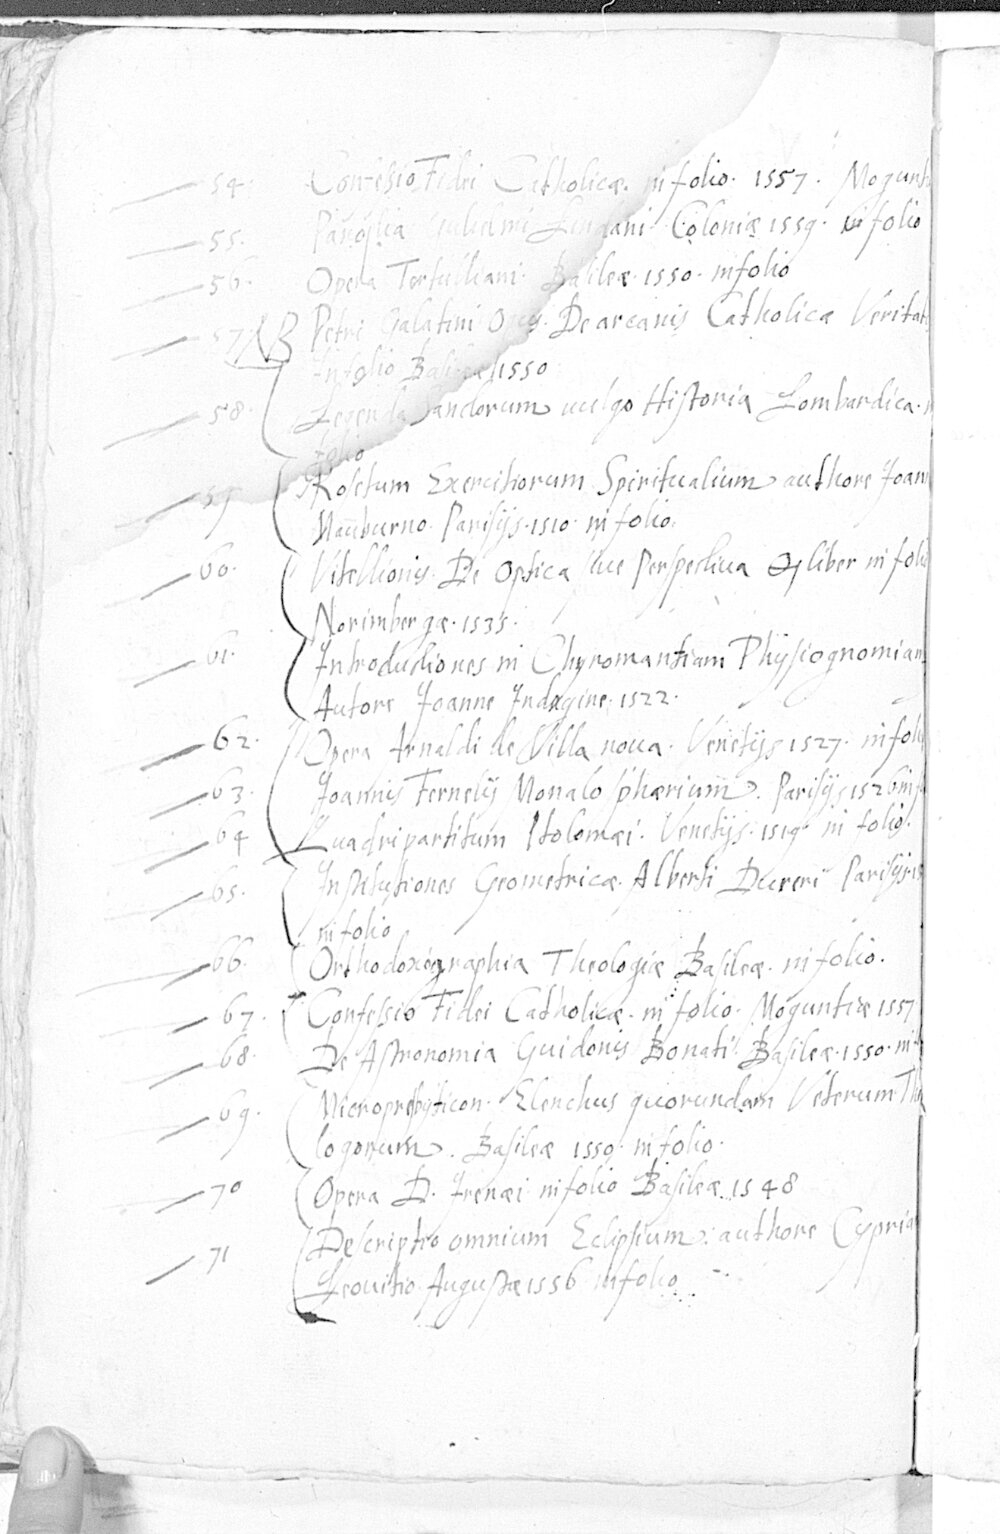 54. Confesio Fidei Catholicæ. in folio. 1557. Mogunt
55. Panoplia Lindani. Coloniæ 1559. in folio
56. Opera Tertulliani. Basileæ. 1550. in folio
57 NB Petri Galatini Opus. De arcanis Catholica Veritat
in folio Basileæ 1550
58. Legenda Sanctorum vulgo Historia Lombardica. in
folio
59 Rosetum Exercitiorum Spiritualium authore Joann
Mauburno. Parisijs. 1510. in folio.
60. Vitellionis. De Optica siue Perspectiua liber in folio
Norimbergæ. 1535.
61. Introductiones in Chyromantiam Phÿsiognomiam
Autore Joanne Indagine. 1522.
62. Opera Arnaldi de Villa noua. Venetijs 1527. in folio
63. Joannis Fernelij Monalosphærium. Parisijs 1526 in fo
64 Quadripartitum Ptolomæi. Venetijs. 1519. in folio.
65. Institutiones Geometricæ. Alberti Dureri Parisijs 15
in folio
66. Orthodoxographia Theologiæ Basileæ. in folio.
67. Confessio Fidei Catholicæ. in folio. Moguntiæ 1557
68. De Astronomia Guidonis Bonati. Basileæ. 1550. in
69. Micropresbyticon. Elenchus quorundam Veterum Theo
logorum. Basileæ 1550. in folio.
70 Opera D. Irenæi in folio Basileæ. 1548
71 Descriptio omnium Eclipsium. authore Cypria
Leouitio. Augustæ 1556. in folio